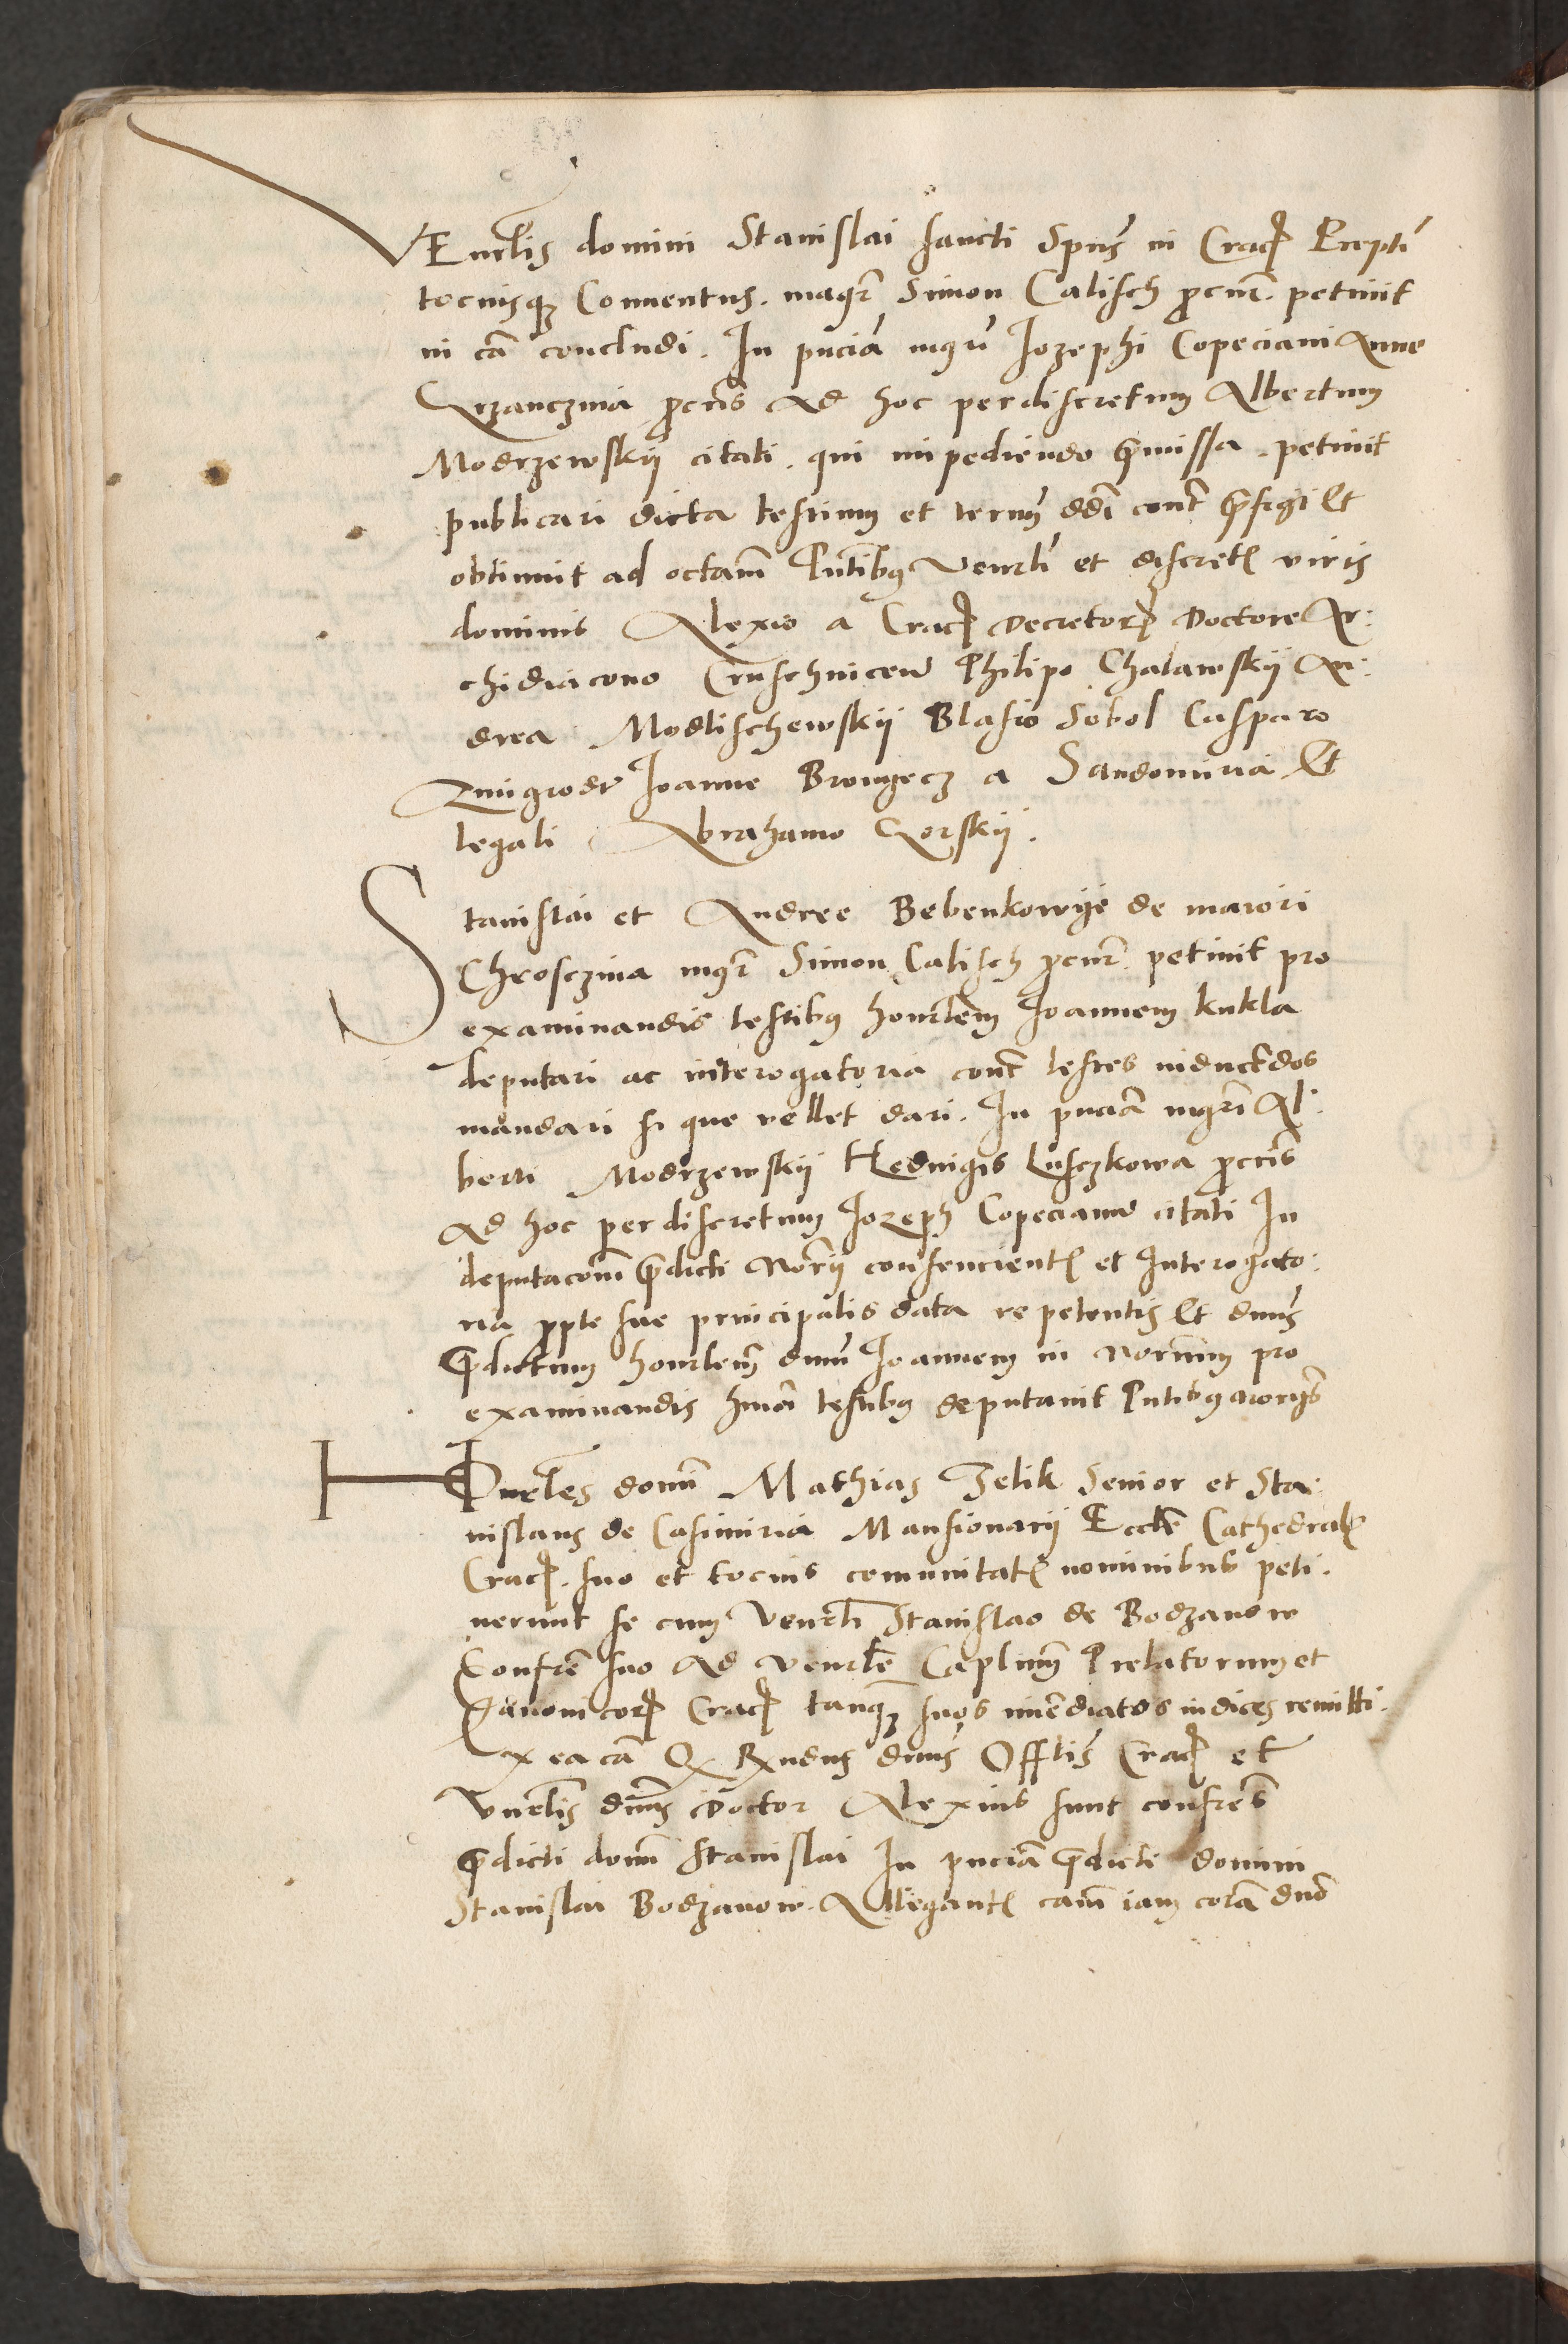 VEnerlis domini Stanislai sancti Spus in Crac Precepti
tociusq Conuentus. magr Simon Calisch procur. petiuit
in ca concludi. In pncia mgri Iozephi Copeciani Anne
procris Ad hoc per discretum Albertum
Modrzewskij citati. qui impediendo pmissa. petiuit
publicari dicta testium et termu ddi cont prefigi Et
obtinuit ad octam Pntibus Venerli et discretis viris
dominis Alexio a Crac Decretor Doctore Ar:
chidiacono Cruschuicen Philipo Chalawskij An:
drea Modlischewskij Blasio Sobol Casparo
Zmigrodt Joanne Brongecz a Sandomiria Et
legali Abrahamo Gorskij.
Stanislai et Andree Bebenkowije de maiori
Chrosczina mgr Simon Calisch procur petiuit pro
examinandis testibus honorlem Joannem kukla
deputari ac interogatoria cont testes inductdos
mandari si que vellet dari. In pncia mgri Al:
berti Modrzewskij Hedwigis Lusczkowa procris
Ad hoc per discretum Jozeph Copecianu citati In
deputacom pdicti Norij consencientis et Interogato:
ria pro pte sue principalis data repetentis Et dnus
pdictum honorlem dnum Joannem in Norium pro
examinandis hmoi testibus deputauit Pntibus
Honorles domi Mathias Telik Senior et Sta:
nislaus de Casimiria Mansionarij Eccle Cathedralis
Crac. suo et tocius comunitatis nominibus peti.
uerunt se cum Venerli Stanislao de Bodzanow
Confre suo Ad Venerle Caplum Prelatorum et
Canonicor Crac tanq suos imediatos iudices remitti.
Ex ea ca Qr Rndus dnus Offlis Crac et
Vnerlis dnus Doctor Alexius sunt confres
pdicti domi Stanislai In pncia pdicti domini
Stanislai Bodzanow. Allegantis cam iam cora dno